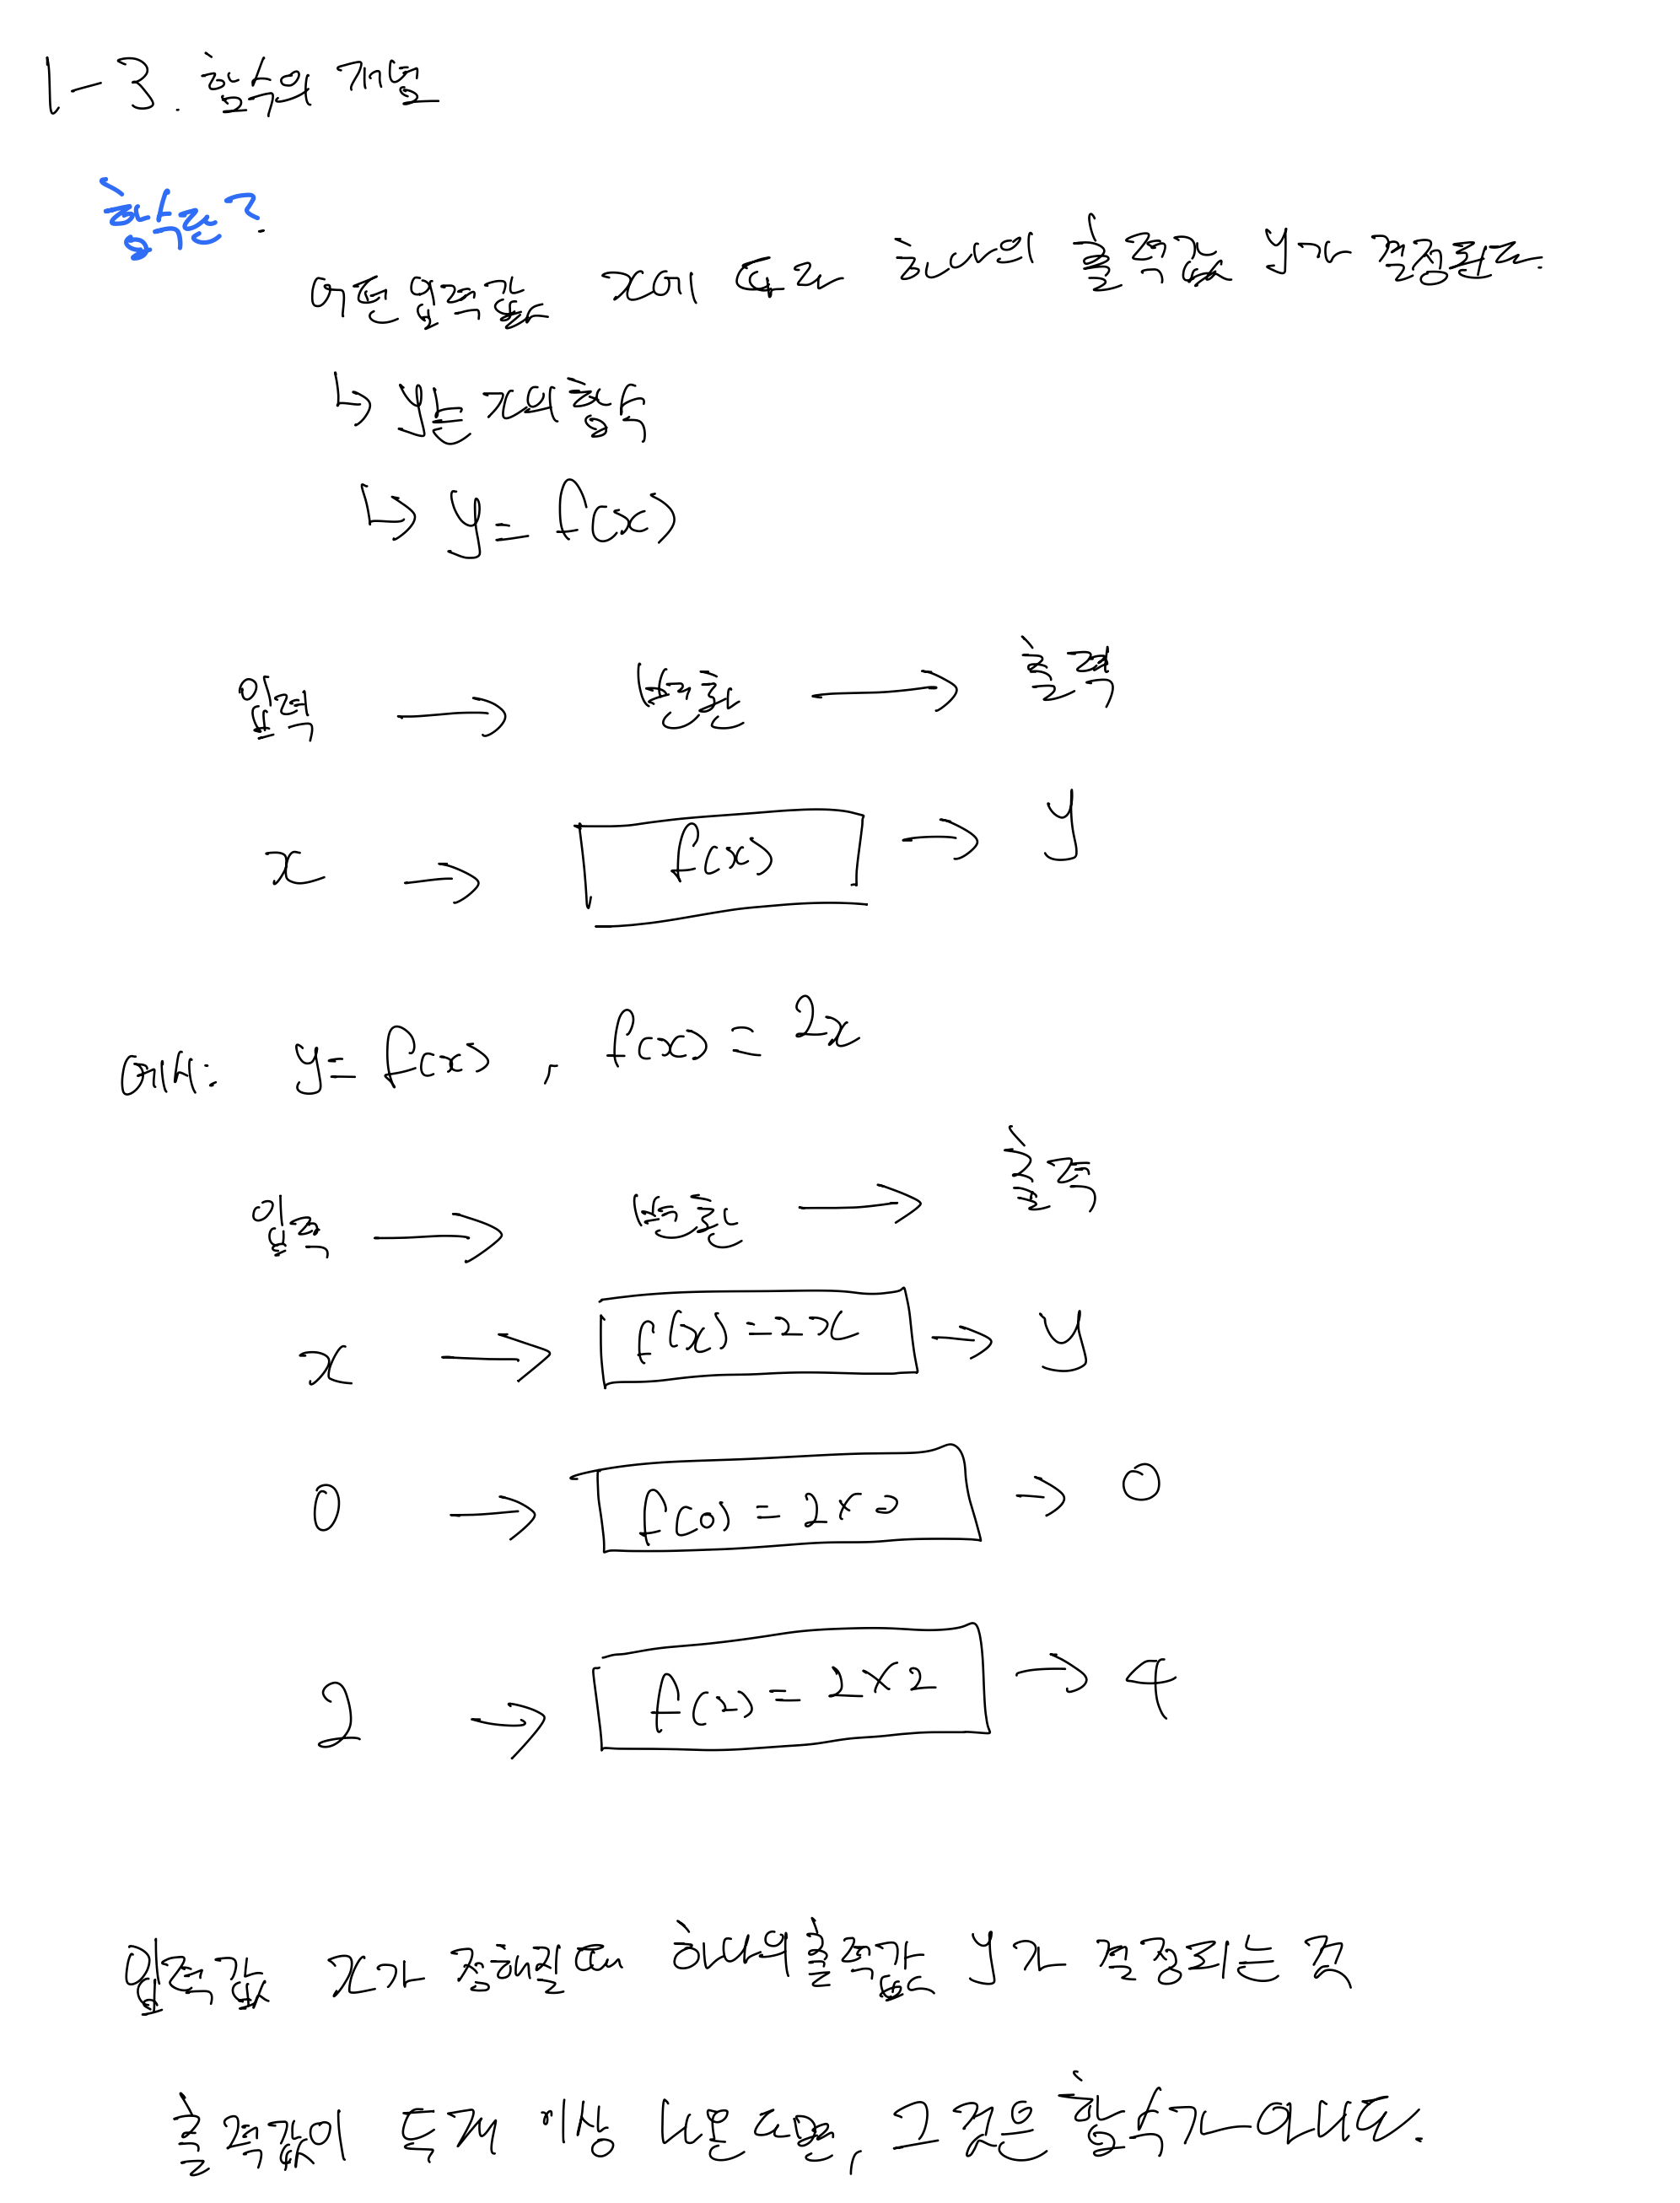 1-3. 함수의 개념
함수란?
어떤 입력값 x에 따라 하나의 출력값 y가 결정된다.
↳ y는 x의 함수
↳ y = f(x)
입력 → 변환 → 출력
x → f(x) → y
예시: y = f(x) , f(x) = 2x
입력 → 변환 → 출력
x → f(x) = 2x → y
0 → f(0) = 2×0 → 0
2 → f(2) = 2×2 → 4
입력값 x가 정해질때 하나의 출력값 y가 결정되는 것
출력값이 두개 이상 나온다면, 그것은 함수가 아니다.